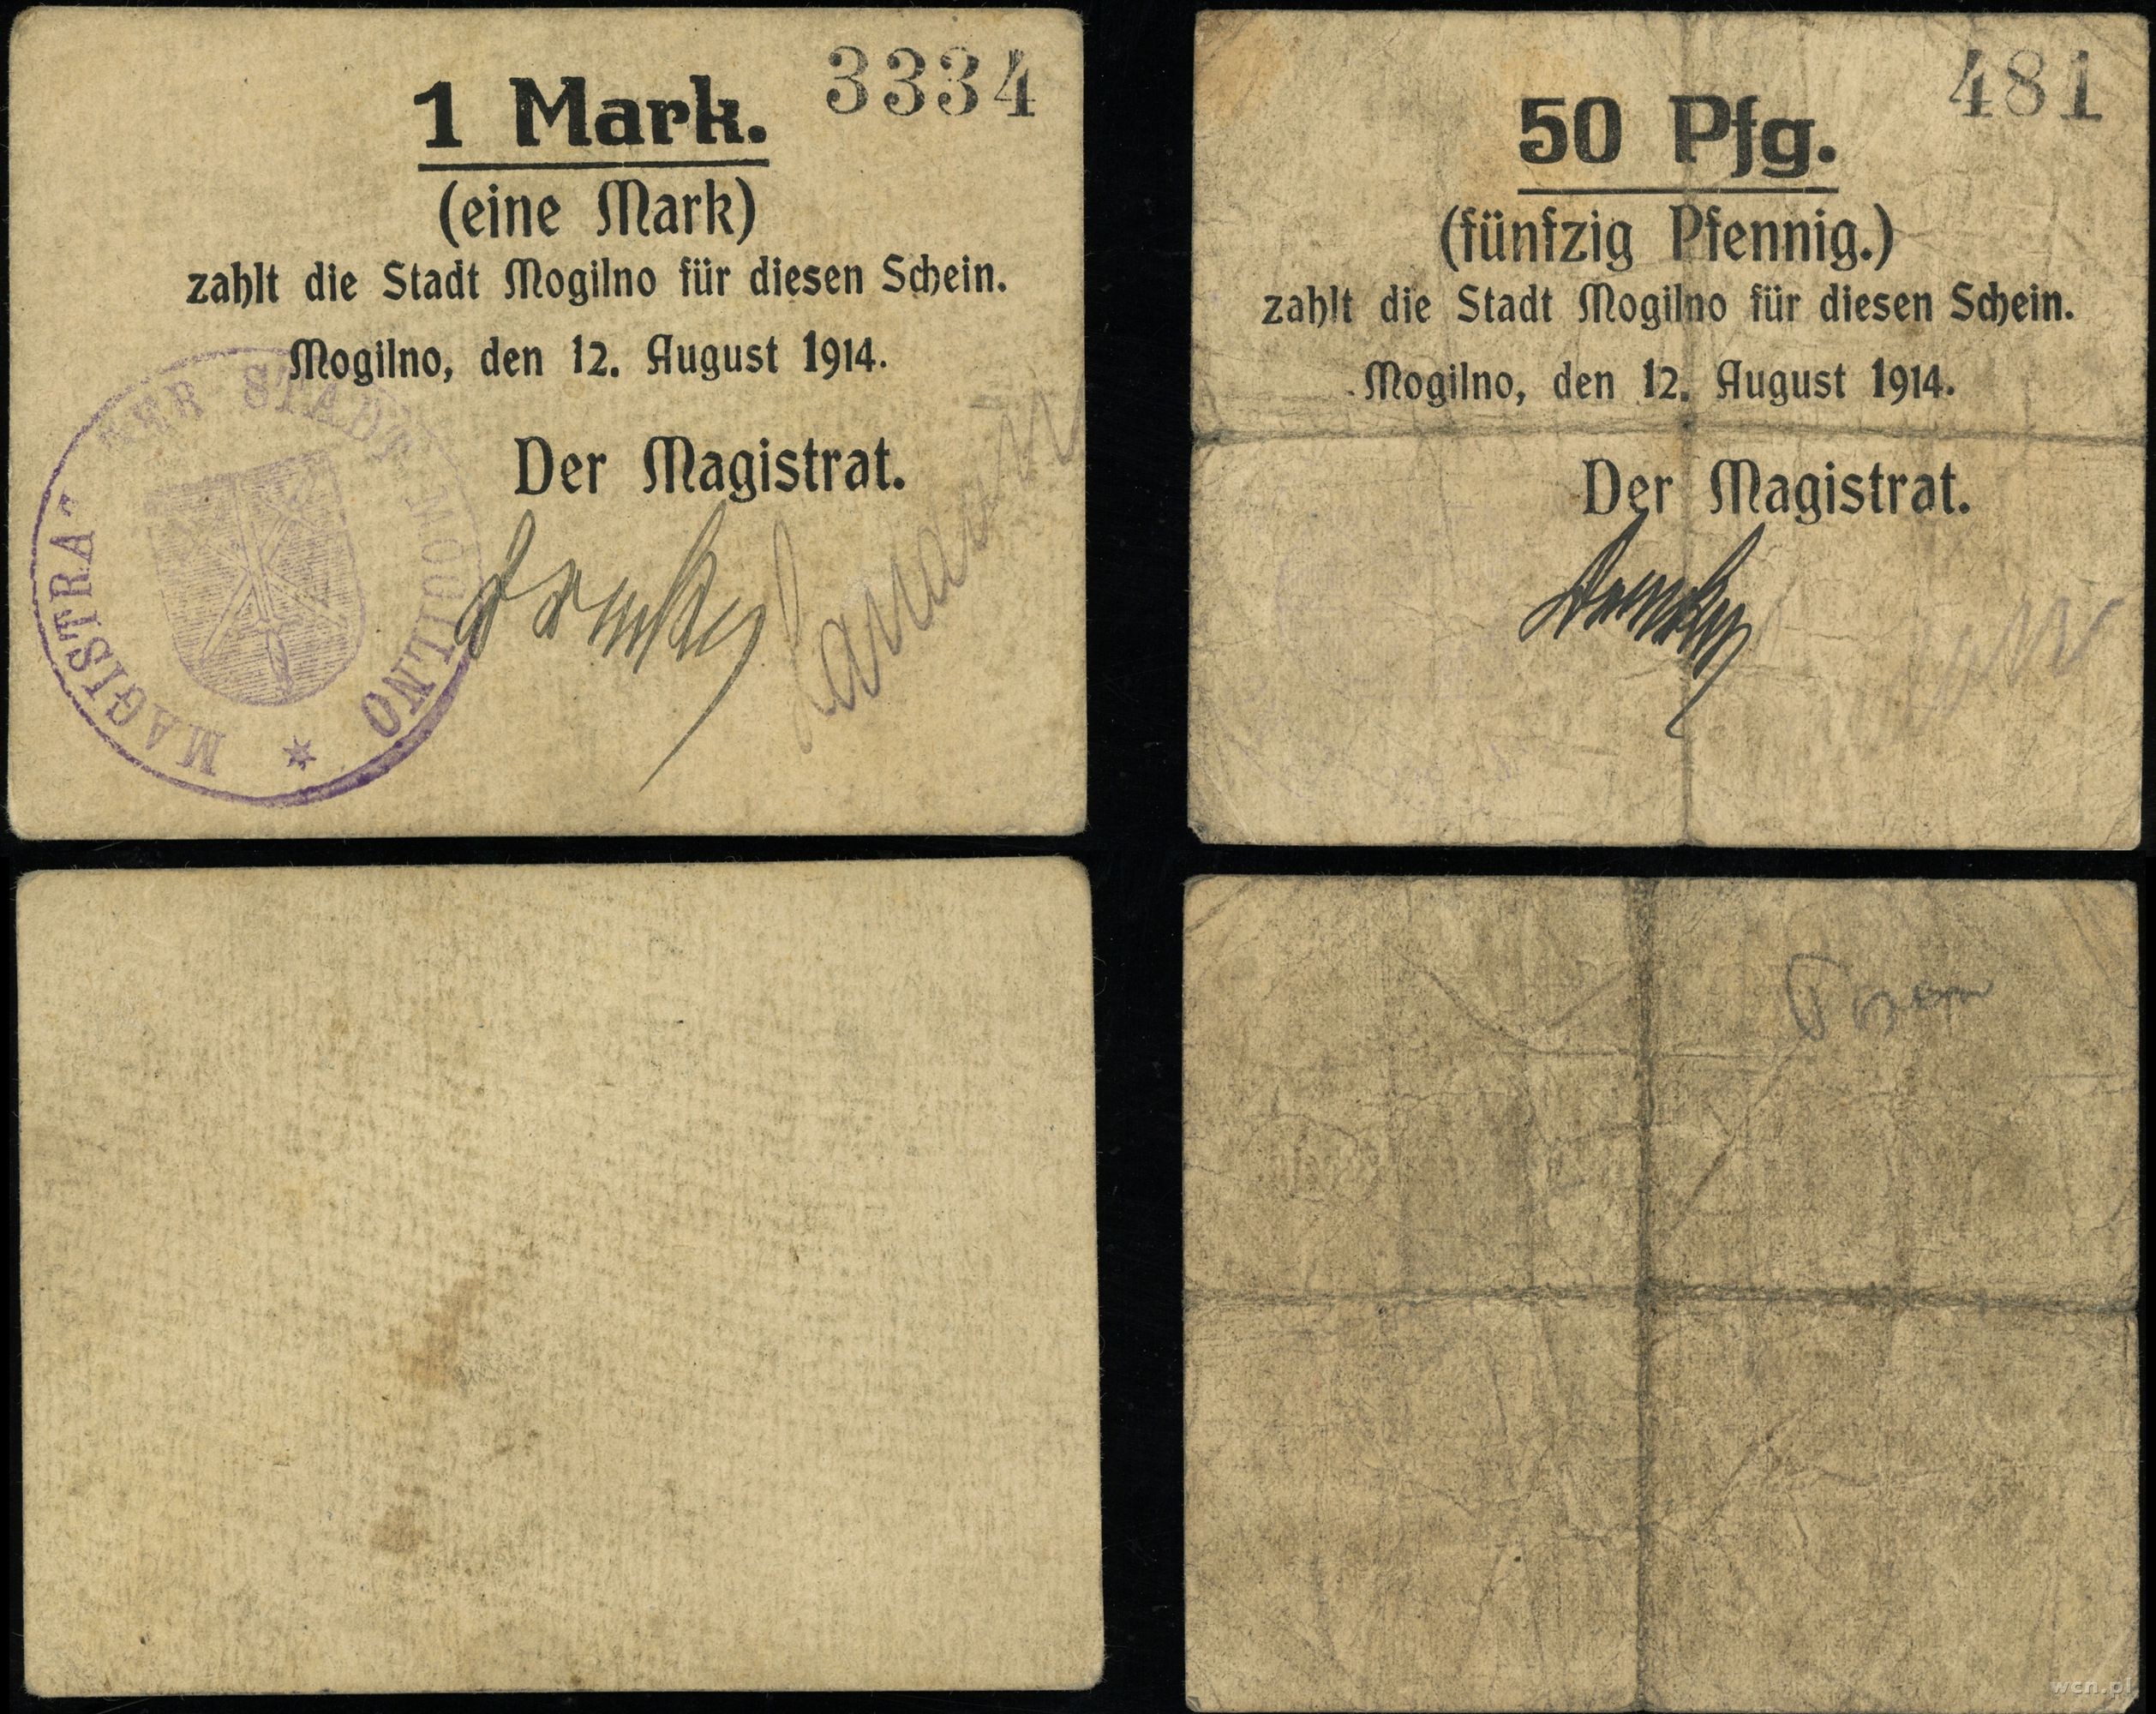 3334
1 Mark.
(eine Mark)
zahlt die Stadt Mogilno für diesen Schein.
Mogilno, den 12. August 1914.
Der Magistrat.
MAGISTRAT DER STADT MOGILNO *
481
50 Pfg.
(fünfzig Pfennig.)
zahlt die Stadt Mogilno für diesen Schein.
Mogilno, den 12. August 1914.
Der Magistrat.
wcn.pl